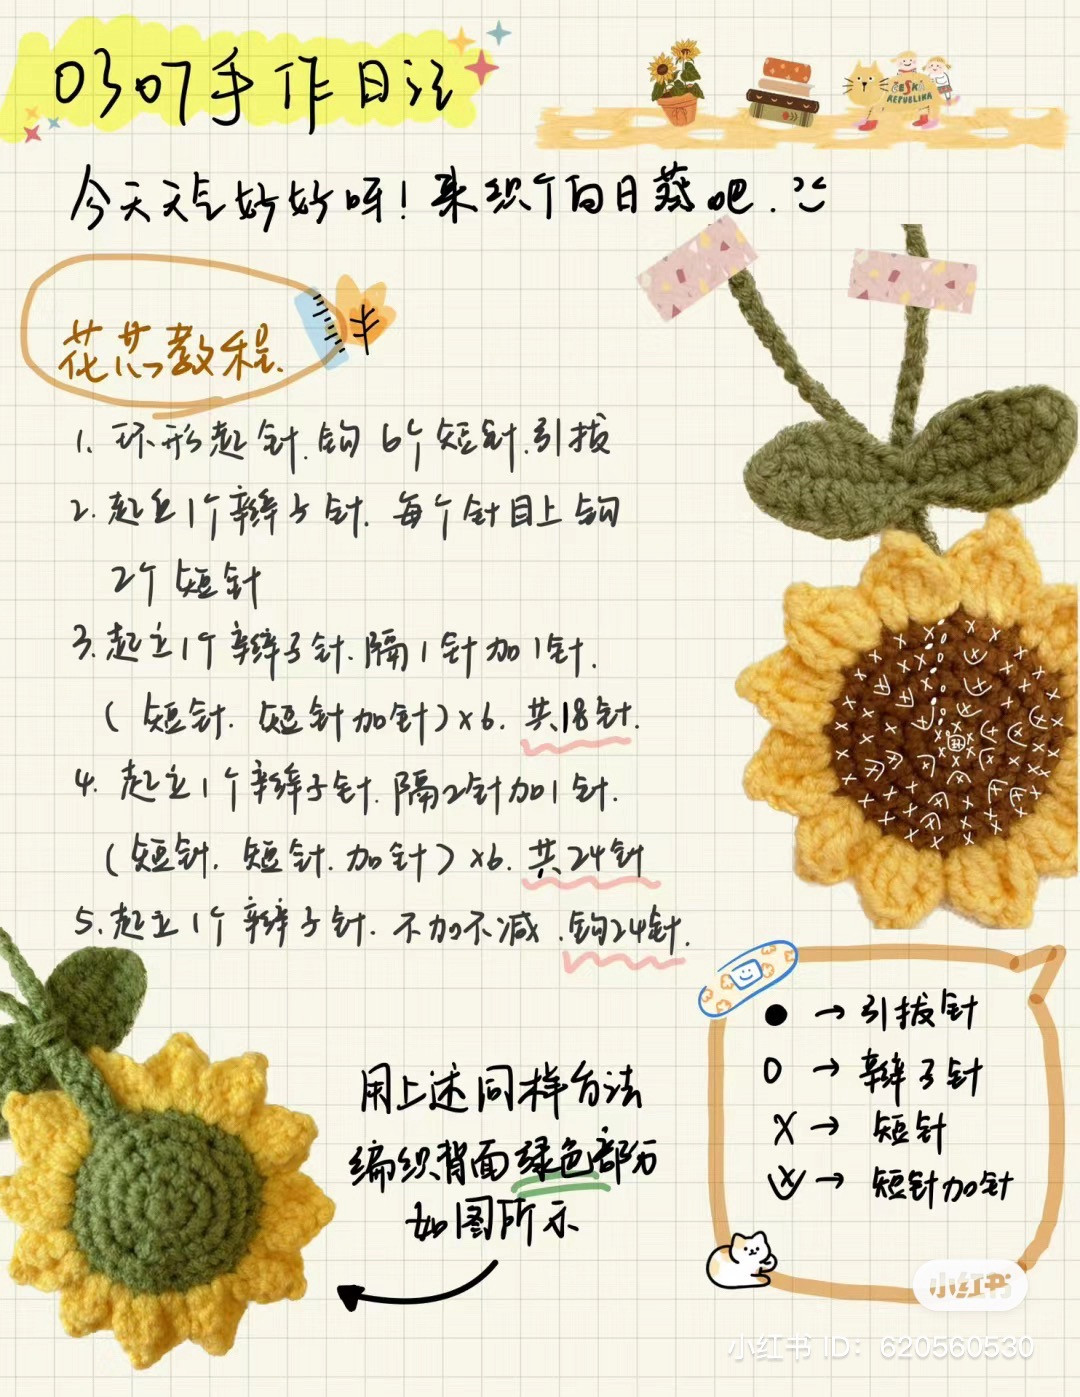 0307手作日记
ČESKÁ
REPUBLIKA
今天天气好好呀！来织个向日葵吧.
花芯教程.
1. 环形起针.钩6个短针.引拔
2. 起立1个辫子针. 每个针目上钩
2个短针
3. 起立1个辫子针.隔1针加1针.
(短针. 短针加针)×6. 共18针.
4. 起立1个辫子针.隔2针加1针.
(短针. 短针.加针)×6. 共24针
5. 起立1个辫子针. 不加不减.钩24针.
用上述同样方法
编织背面绿色部分
如图所示
● → 引拔针
0 → 辫子针
X → 短针
→ 短针加针
小红书
小红书 ID: 620560530